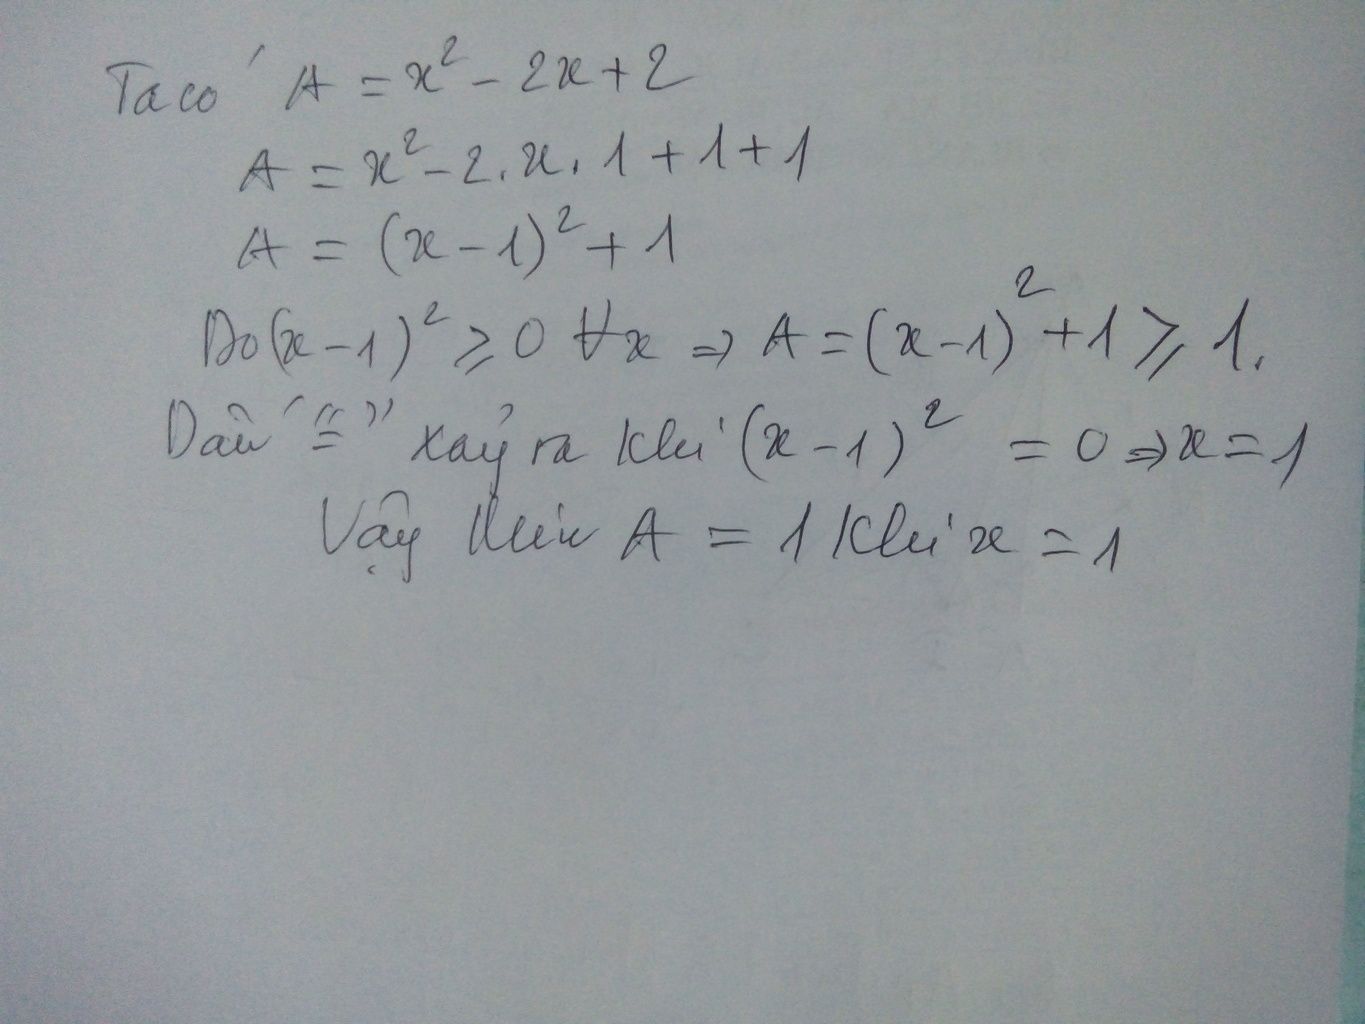 Ta có A = x² - 2x + 2
A = x² - 2.x.1 + 1 + 1
A = (x - 1)² + 1
Do (x - 1)² ⩾ 0 ∀x ⇒ A = (x - 1)² + 1 ⩾ 1.
Dấu "=" xảy ra khi (x - 1)² = 0 ⇒ x = 1
Vậy Min A = 1 khi x = 1